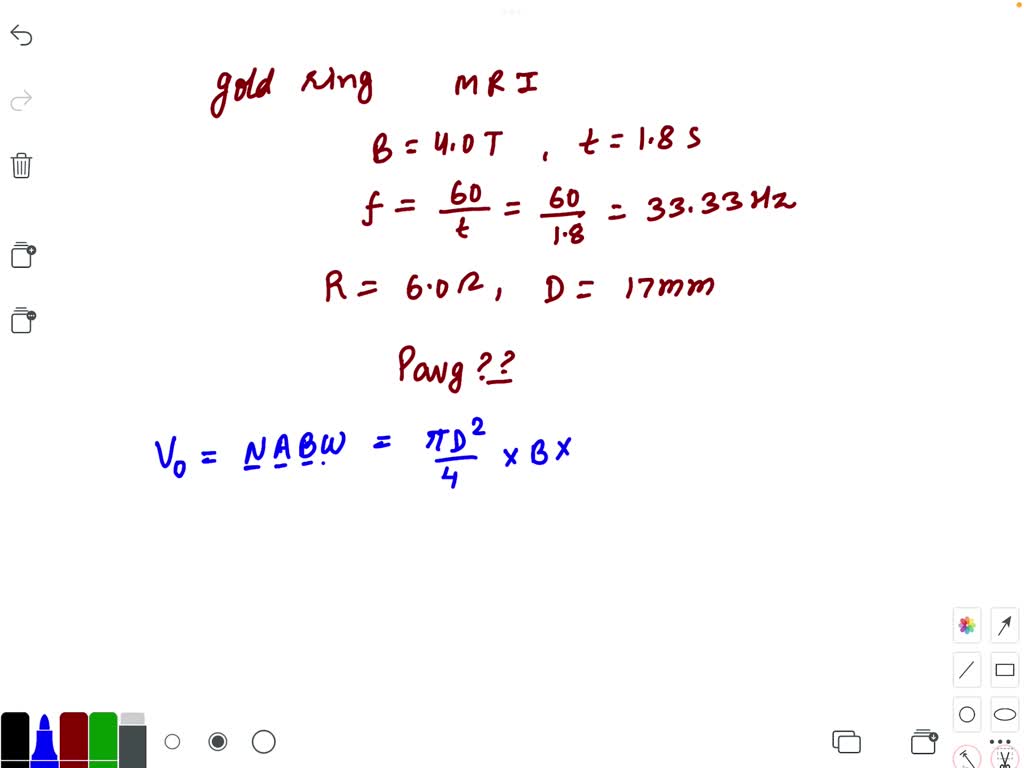 gold ring MRI
B = 4.0 T , t = 1.8 s
f = 60/t = 60/1.8 = 33.33 Hz
R = 6.0 Ω, D = 17mm
Pavg ??
V₀ = NABω = πD²/4 × B ×